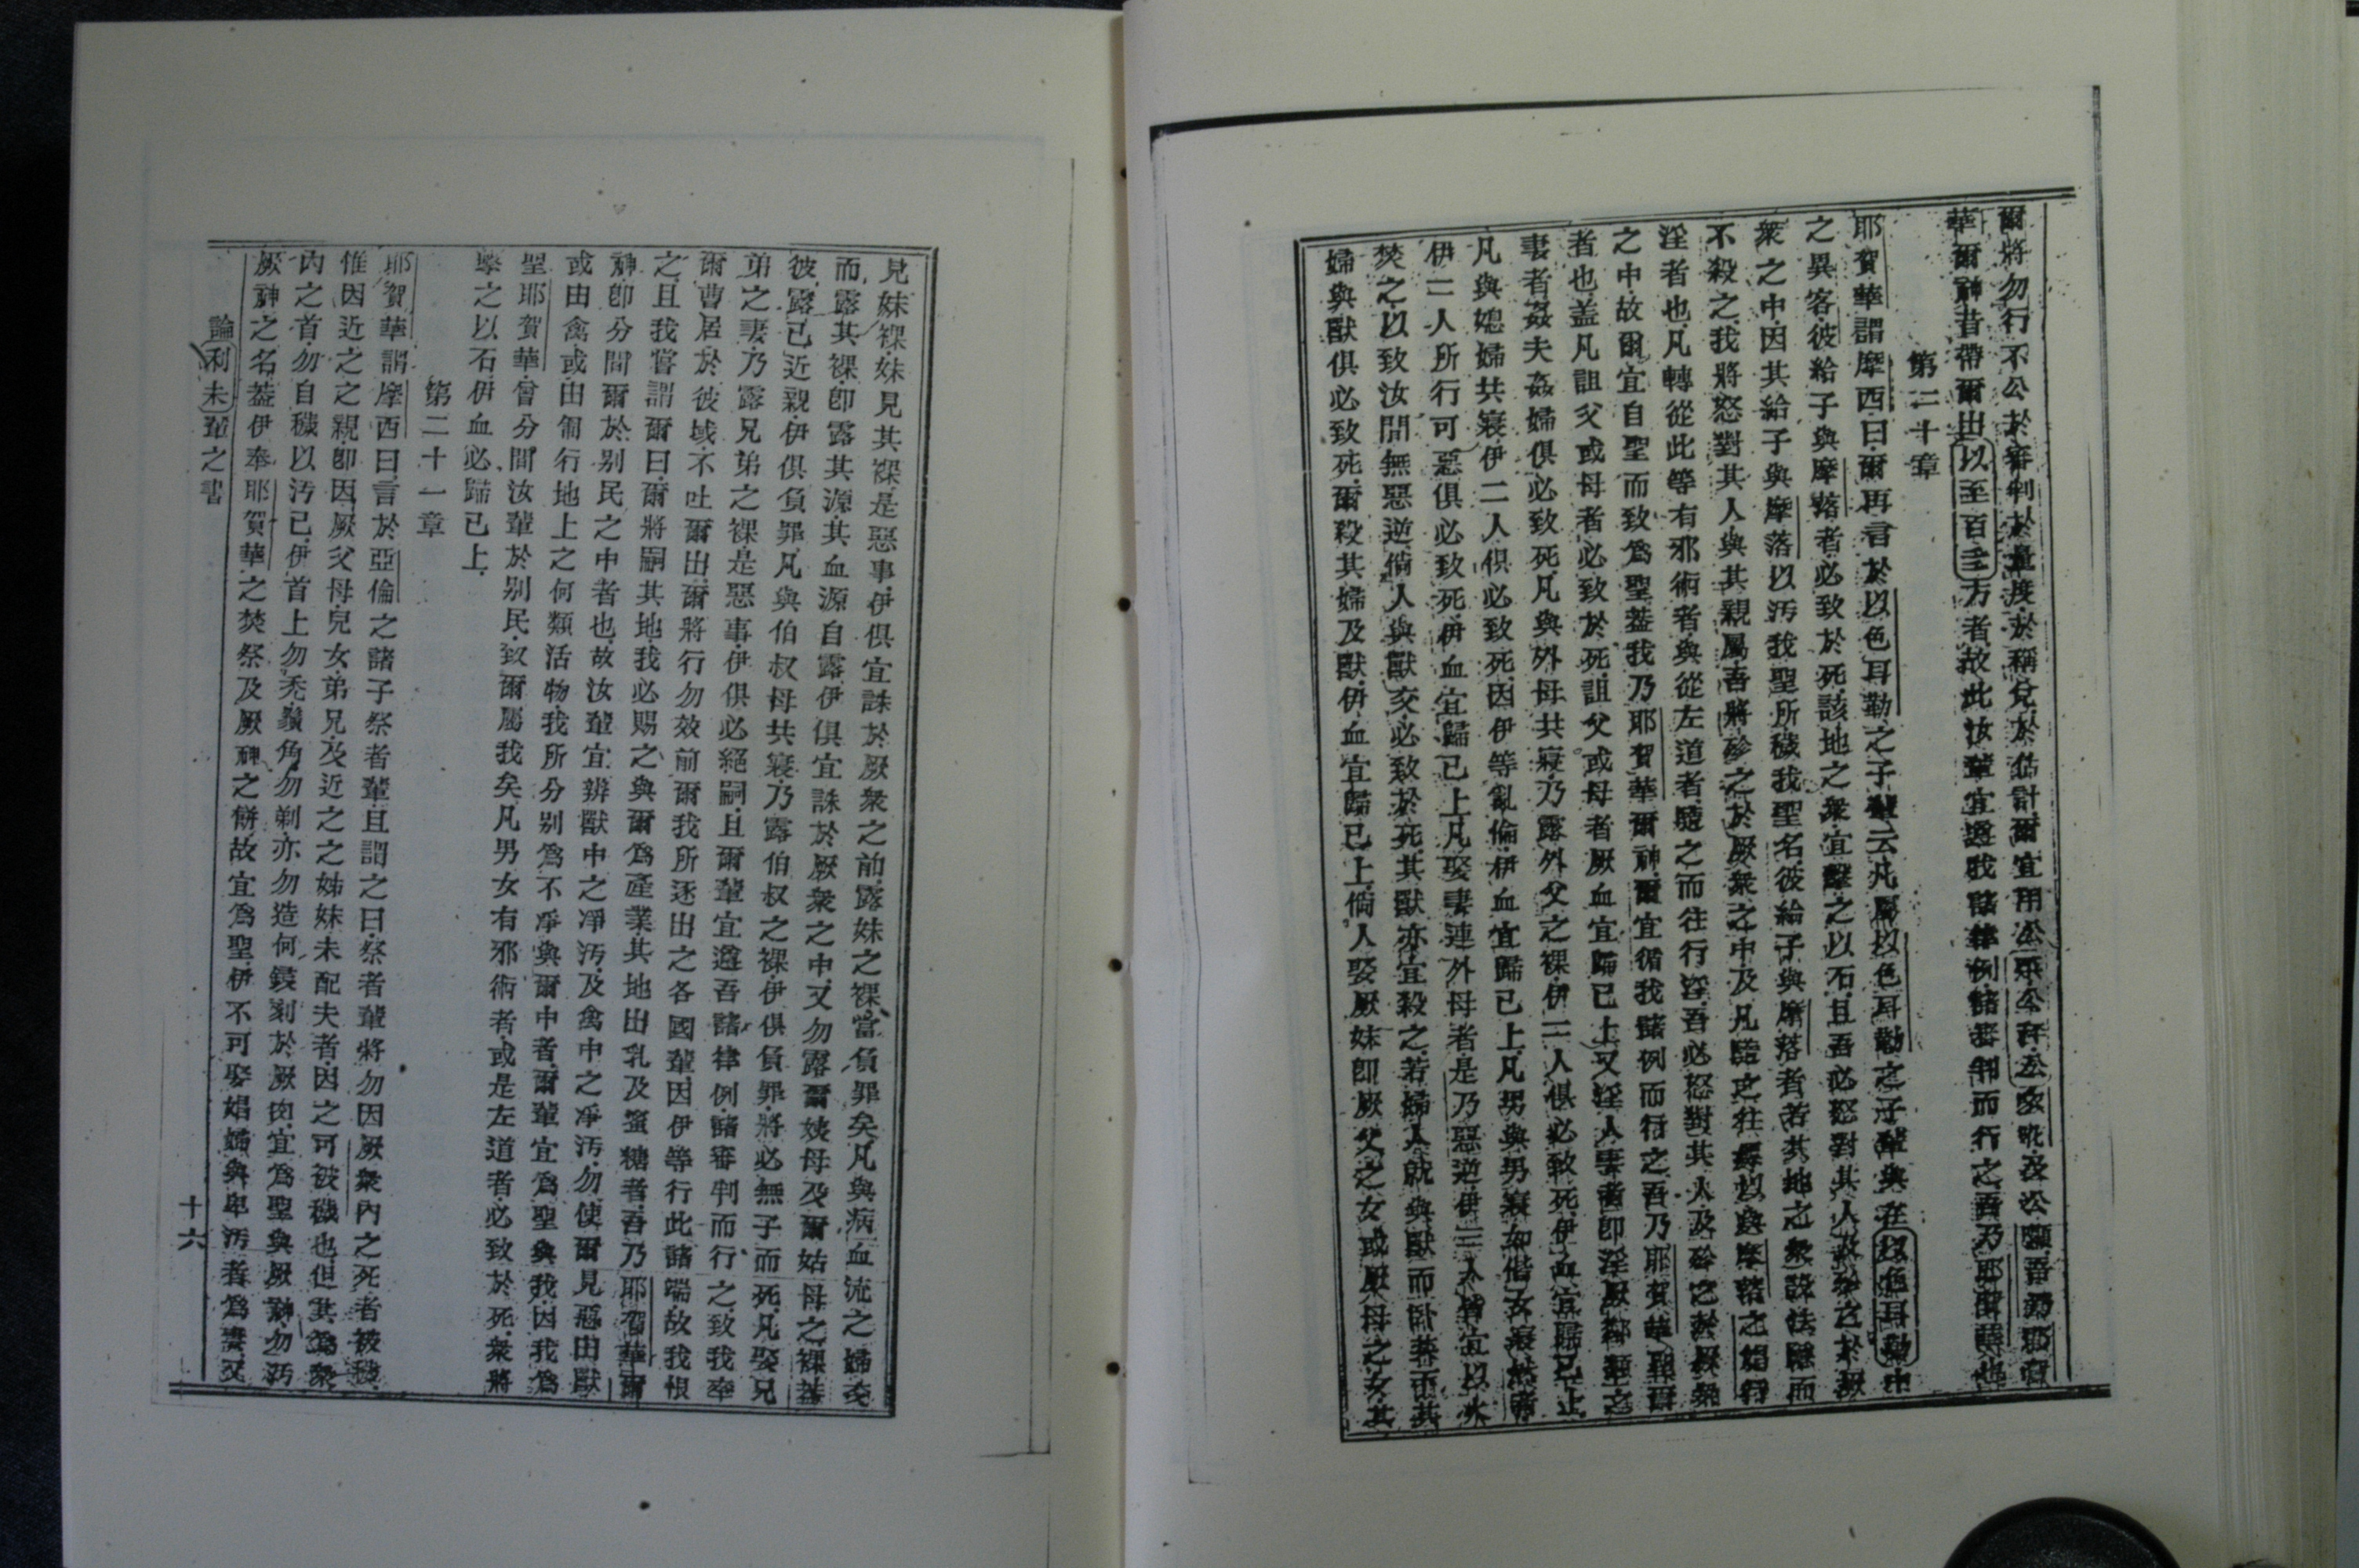 爾將勿行不公於審判於量度於稱兌於估計爾宜用公
華爾神昔帶爾出以至百三方者故此汝輩宜遵我諸律例諸審判而行之吾乃耶賀華也
第二十章
耶賀華謂摩西曰爾再言於以色耳勒之子輩云凡屬以色耳勒之子輩與在以色耳勒中
之異客彼給子與摩落者必致於死該地之衆宜擊之以石且吾必怒對其人及殄之於厥
衆之中因其給子與摩落以汚我聖所穢我聖名彼給子與摩落者若其地之衆設法隱而
不殺之我將怒對其人與其親屬吾將殄之於厥衆之中及凡隨之往 以與摩落之娼行
淫者也凡轉從此等有邪術者與從左道者隨之而往行淫吾必怒對其人及殄之於厥衆
之中故爾宜自聖而致爲聖葢我乃耶賀華爾神爾宜循我諸例而行之吾乃耶賀華聖爾
者也盖凡詛父或母者必致於死詛父或母者厥血宜歸已上又淫人妻者卽淫厥鄰 之
妻者姦夫姦婦俱必致死凡與外母共寢乃露外父之裸伊二人俱必致死伊血宜歸已上
凡與媳婦共寢伊二人俱必致死因伊等亂倫伊血宜歸已上凡男與男寢如偕女寢然者
伊二人所行可惡俱必致死伊血宜歸已上凡娶妻連外母者是乃惡逆伊三人皆宜以火
焚之以致汝間無惡逆倘人與獸交必致於死其獸亦宜殺之若婦人就與獸而卧葢下其
婦與獸俱必致死爾殺其婦及獸伊血宜歸已上倘人娶厥妹卽厥父之女或厥母之女其
見妹裸妹見其裸是惡事伊俱宜誅於厥衆之前露妹之裸當負罪矣凡與病血流之婦交
而露其裸卽露其源其血源自露伊俱宜誅於厥衆之中又勿露爾姨母及爾姑母之裸葢
彼露已近親伊俱負罪凡與伯叔母共寢乃露伯叔之裸伊俱負罪將必無子而死凡娶兄
弟之妻乃露兄弟之裸是惡事伊俱必絕嗣且爾輩宜遵吾諸律例諸審判而行之致我牽
爾曹居於彼域不吐爾出爾將行勿效前爾我所逐出之各國輩因伊等行此諸端故我恨
之且我嘗謂爾曰爾將嗣其地我必賜之與爾爲產業其地出乳及蜜糖者吾乃耶賀華爾
神卽分間爾於别民之中者也故汝輩宜辨獸中之凈汚及禽中之凈汚勿使爾見惡由獸
或由禽或由匍行地上之何類活物我所分别爲不凈與爾中者爾輩宜爲聖與我因我爲
聖耶賀華曾分間汝輩於别民致爾屬我矣凡男女有邪術者或是左道者必致於死衆將
擊之以石伊血必歸已上
第二十一章
耶賀華謂摩西曰言於亞倫之諸子祭者輩且謂之曰祭者輩將勿因厥衆內之死者被穢
惟因近之之親卽因厥父母兒女弟兄及近之之姊妹未配夫者因之可被穢也但其爲衆
內之首勿自穢以汚已伊首上勿禿鬚角勿剃亦勿造何鏤刻於厥肉宜爲聖與厥神勿汚
厥神之名葢伊奉耶賀華之焚祭及厥神之餅故宜爲聖伊不可娶娼婦與卑汚者爲妻又
論利未輩之書 十六